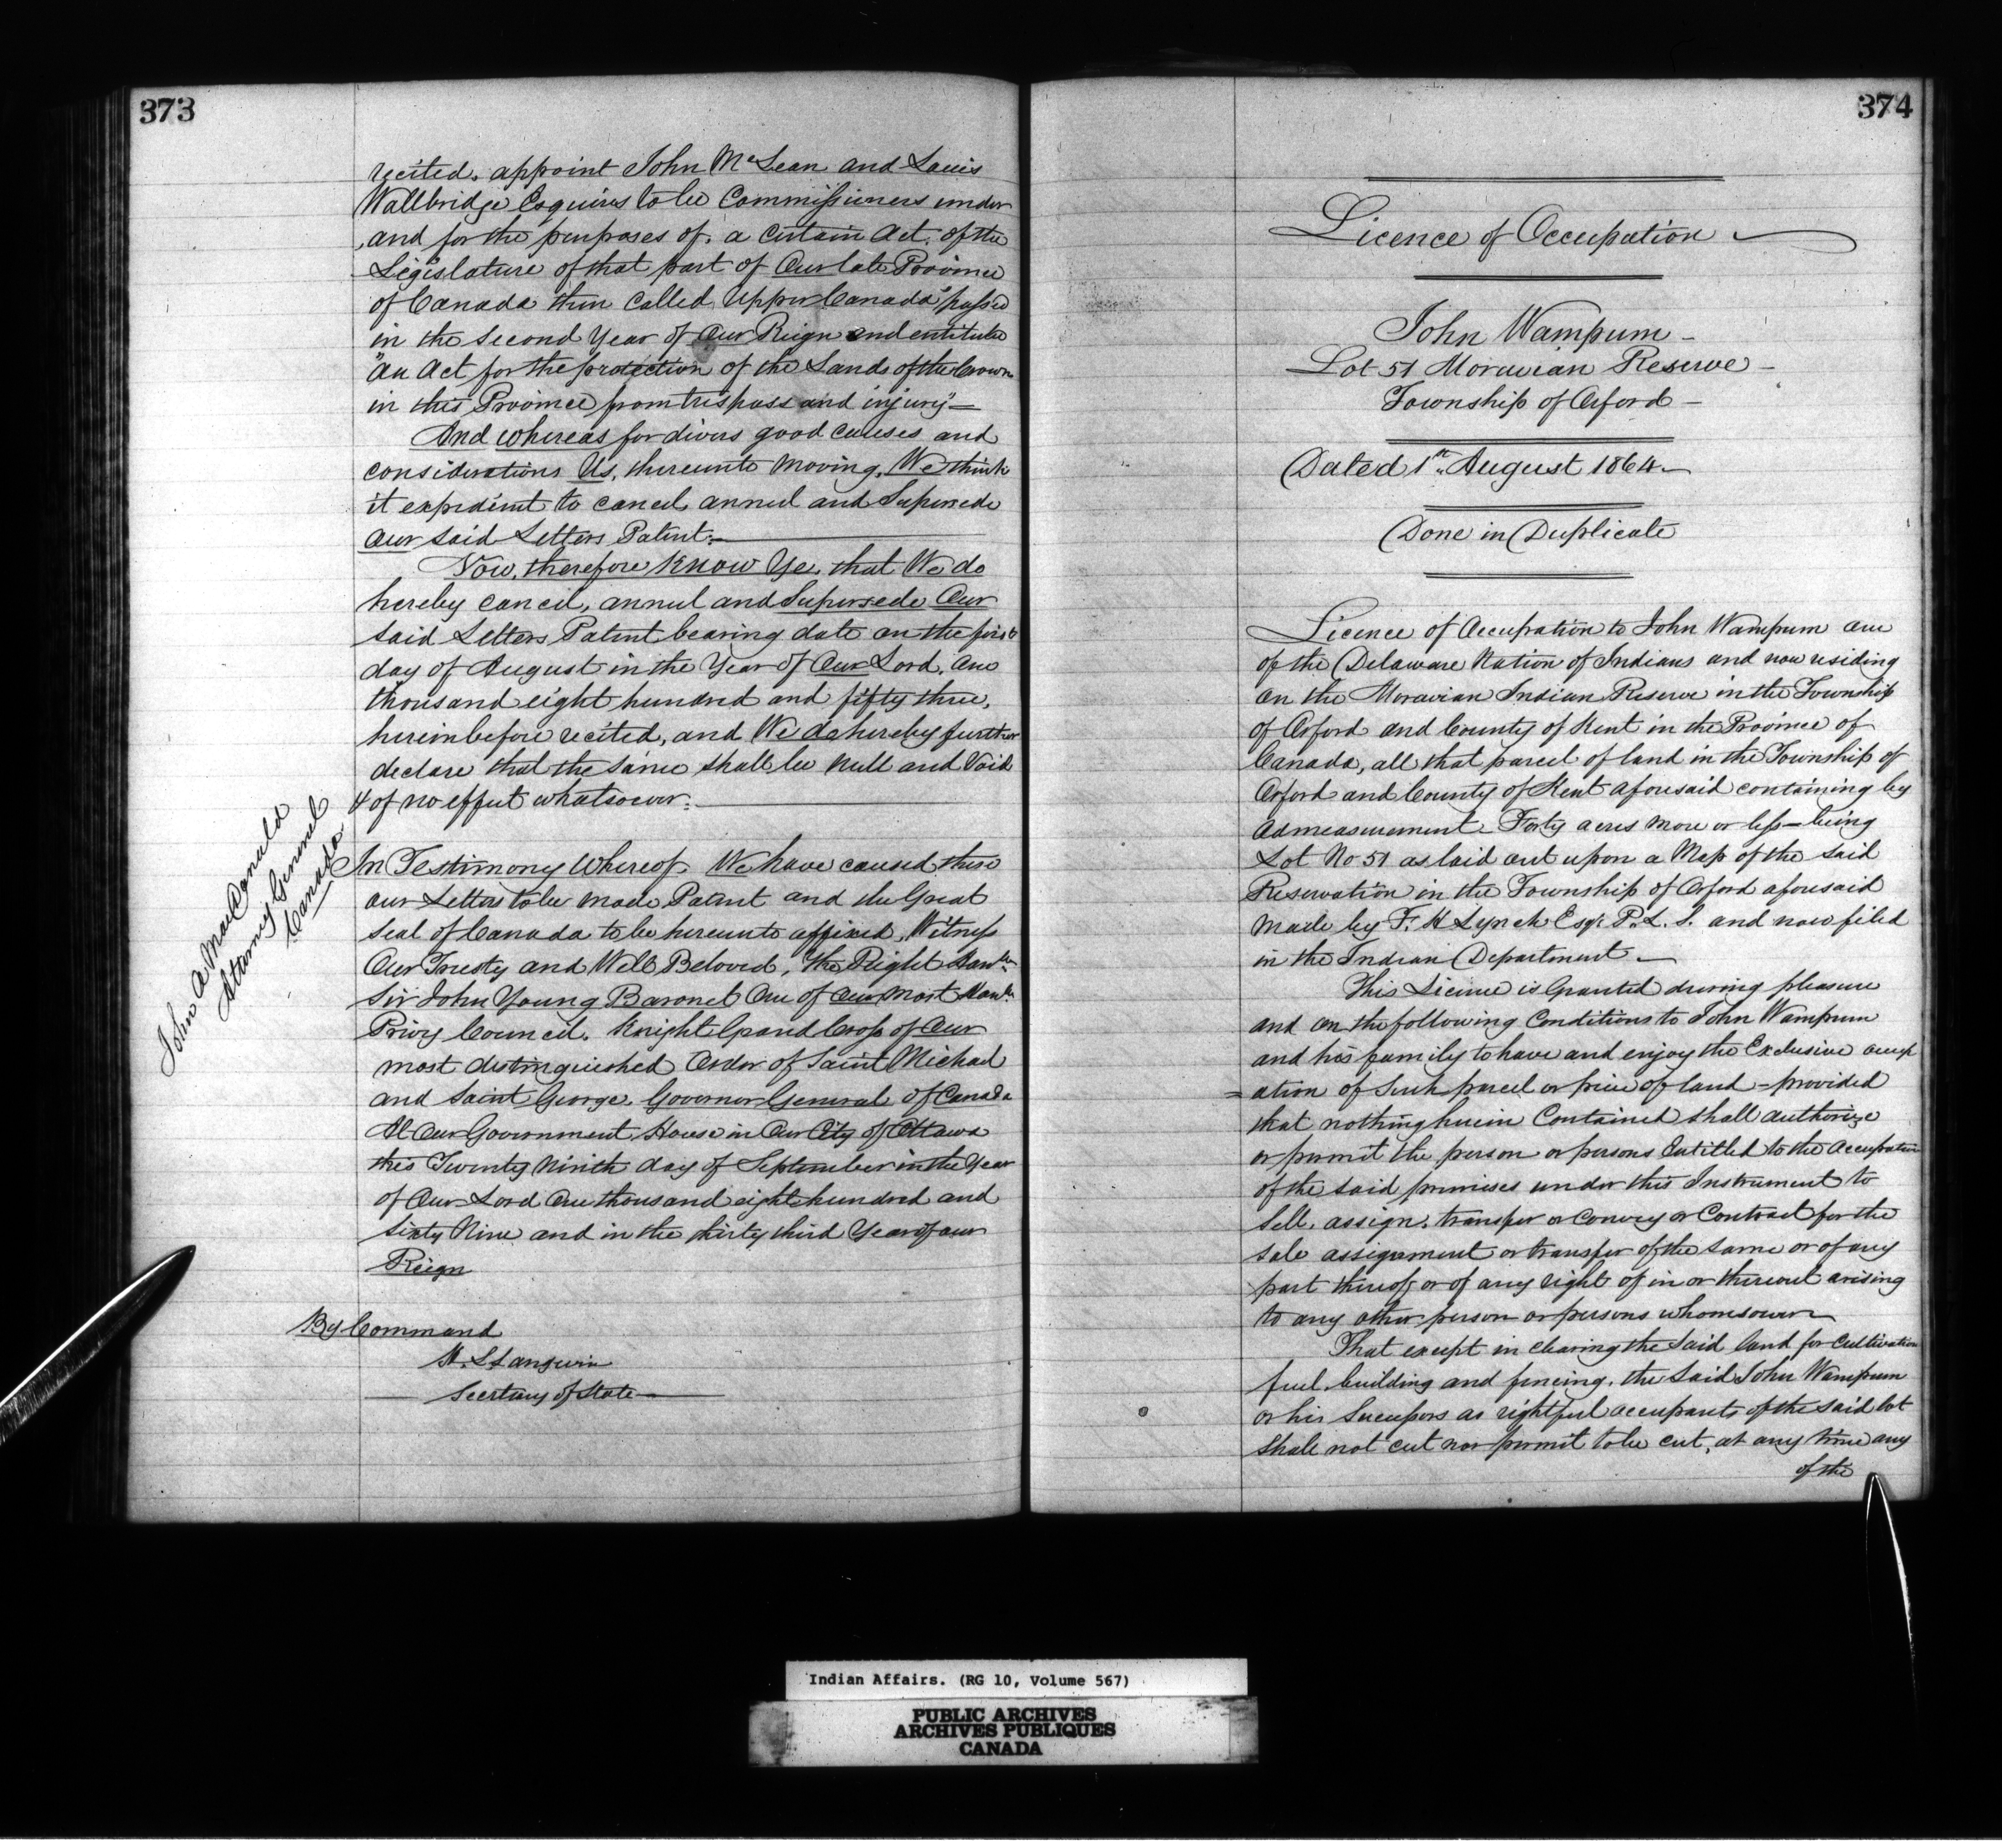 373
recited, appoint John McLean and Louis
Wallbridge Esquires to be Commissioners under
and for the purposes of, a certain Act, of the
Legislature of that part of Our late Province
of Canada then called Upper Canada "passed
in the Second Year of Our Reign and entituled
"An Act for the protection of the Lands of the Crown
in this Province from trespass and injury"—
And whereas for divers good causes and
considerations Us, thereunto moving, We think
it expedient to cancel, annul and Supersede
Our said Letters Patent:—
Now, therefore Know Ye, that We do
hereby cancel, annul and Supersede Our
said Letters Patent bearing date on the first
day of August in the Year of Our Lord, One
thousand eight hundred and fifty three,
hereinbefore recited, and We do hereby further
declare that the same shall be Null and Void
& of no effect whatsoever:—
John A MacDonald
Attorney General
Canada
In Testimony Whereof, We have caused these
our Letters to be made Patent and the Great
Seal of Canada to be hereunto affixed, Witness
Our Trusty and Well Beloved, The Right Honble
Sir John Young Baronet One of Our Most Honble
Privy Council, Knight Grand Cross of Our
most distinguished Order of Saint Michael
and Saint George, Governor General of Canada
At Our Government House in Our City of Ottawa
this Twenty Ninth day of September in the Year
of Our Lord One thousand eight hundred and
Sixty Nine and in the thirty third Year of our
Reign
By Command
H. L Langevin
Secretary of State—
374
Licence of Occupation
John Wampum -
Lot 51 Moravian Reserve -
Township of Orford -
Dated 1st August 1864—
Done in Duplicate
Licence of Occupation to John Wampum one
of the Delaware Nation of Indians and now residing
on the Moravian Indian Reserve in the Township
of Orford and County of Kent in the Province of
Canada, all that parcel of land in the Township of
Orford and County of Kent aforesaid containing by
admeasurement Forty acres more or less—being
Lot No 51 as laid out upon a Map of the said
Reservation in the Township of Orford aforesaid
made by F. H Lynch Esqr. P. L. S. and now filed
in the Indian Department—
This Licence is Granted during pleasure
and on the following Conditions to John Wampum
and his family to have and enjoy the Exclusive occup
=ation of Such parcel or piece of land - provided
that nothing herein Contained shall authorize
or permit the person or persons Entitled to the Occupation
of the said premises under this Instrument to
Sell, assign, transfer or Convey or Contract for the
sale assignment or transfer of the same or of any
part thereof, or of any right of in or thereout arising
to any other person or persons whomsoever
That except in clearing the said land for Cultivation
fuel, building and fencing, the said John Wampum
or his Successors as rightful occupants of the said lot
shall not cut nor permit to be cut, at any time any
of the
Indian Affairs. (RG 10, Volume 567)
PUBLIC ARCHIVES
ARCHIVES PUBLIQUES
CANADA